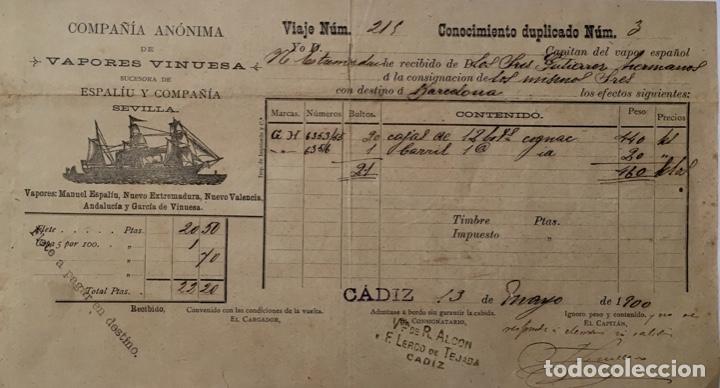 COMPAÑÍA ANÓNIMA
DE
VAPORES VINUESA
SUCESORA DE
ESPALÍU Y COMPAÑÍA
SEVILLA.
Vapores: Manuel Espalíu, Nuevo Extremadura, Nuevo Valencia,
Andalucía y García de Vinuesa.
Viaje Núm. 215 Conocimiento duplicado Núm. 3
Yo D. Capitan del vapor español
N. Extremadura he recibido de D. los Sres Gutierrez hermanos
á la consignacion de los mismos Sres
con destino á Barcelona los efectos siguientes:
Marcas. Números Bultos. CONTENIDO. Peso Precios
G. H 20 cajas de 12 cognac 140 ks
1 barril 1@ 20 "
21 160
Timbre Ptas.
Impuesto "
Flete Ptas. 20 50
Capa 5 por 100. 1
70
Total Ptas. 22 20
Flete a pagar en destino.
CÁDIZ 13 de Mayo de 1900
Recibido, Convenido con las condiciones de la vuelta.
EL CARGADOR,
Admítase á bordo sin garantir la cabida.
CONSIGNATARIO,
Ignoro peso y contenido, y no
EL CAPITÁN,
DE R. ALCON
F. LERDO DE TEJADA
CADIZ
todocoleccion.net